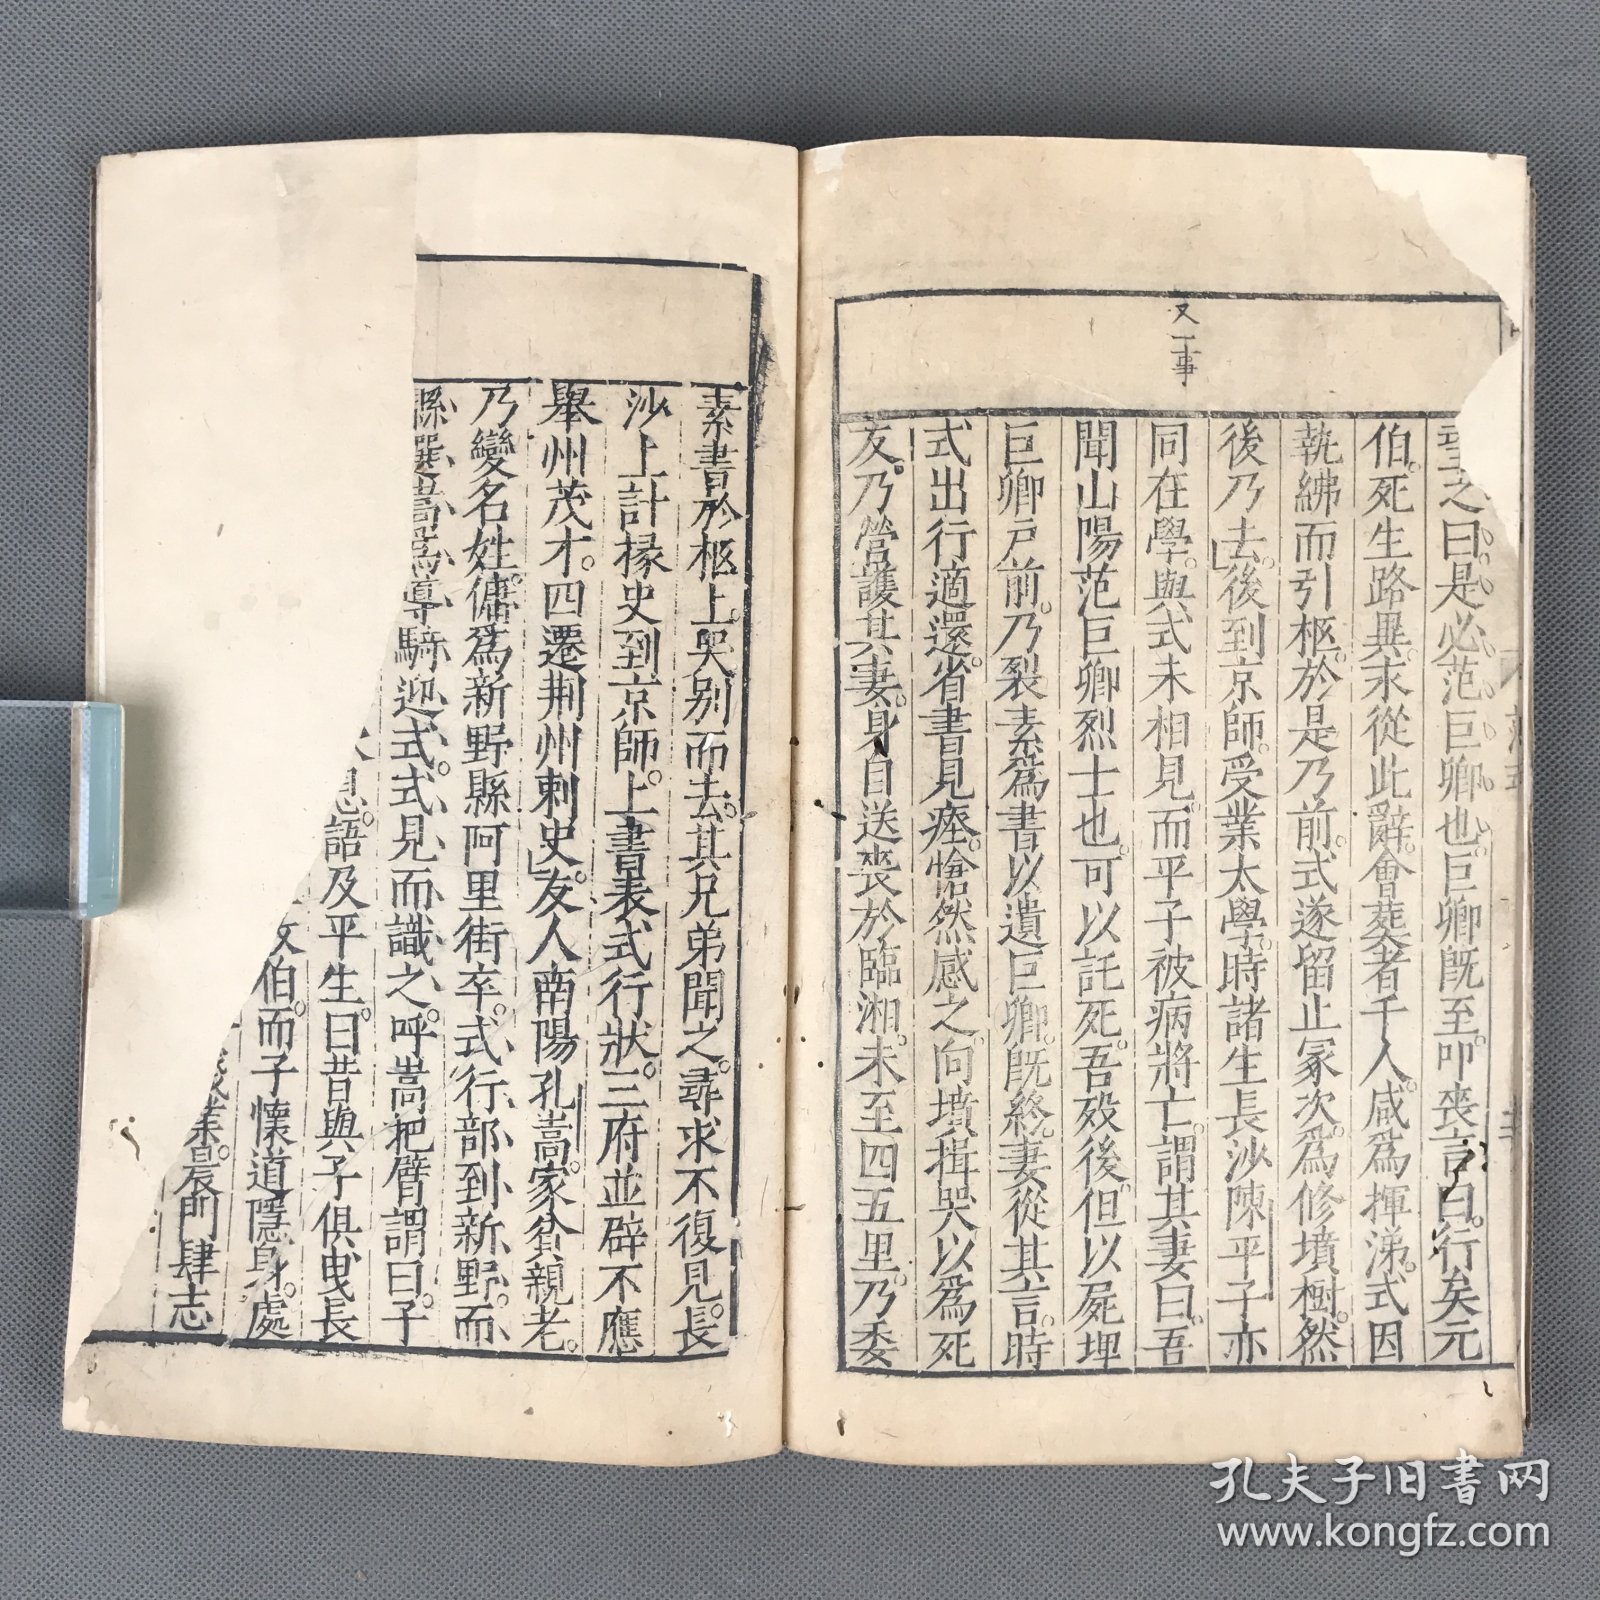 又一事
之曰是必范巨卿也巨卿既至叩喪言曰行矣元
伯死生路異永從此辭會葬者千人咸爲揮涕式因
執紼而引柩於是乃前式遂留止冢次爲修墳樹然
後乃去後到京師受業太學時諸生長沙陳平子亦
同在學與式未相見而平子被病將亡謂其妻曰吾
聞山陽范巨卿烈士也可以託死吾歿後但以屍埋
巨卿戶前乃裂素爲書以遺巨卿既終妻從其言時
式出行適還省書見瘞愴然感之向墳揖哭以爲死
友乃營護其妻身自送喪於臨湘未至四五里乃委
素書於柩上哭别而去其兄弟聞之尋求不復見長
沙上計掾史到京師上書表式行狀三府並辟不應
舉州茂才四遷荆州刺史友人南陽孔嵩家貧親老
乃變名姓傭爲新野縣阿里街卒式行部到新野而
縣選嵩爲導騎迎式式見而識之呼嵩把臂謂曰子
息語及平生曰昔與子俱曳長
伯而子懷道隱身處
業晨門肆志
孔夫子旧书网
www.kongfz.com